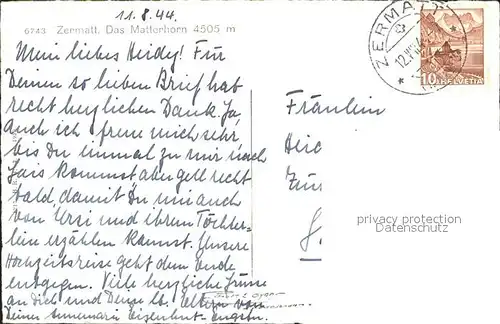 11.8.44.
6743 Zermatt. Das Matterhorn 4505 m
Mein liebes Heidy! Für
Deinen so lieben Brief hab
recht herzlichen Dank. Ja,
auch ich freue mich sehr
bis Du einmal zu mir nach
kommst aber gell recht
bald, damit Du mir auch
von Ursi und ihrem Töchter-
lein erzählen kannst. Unsere
Hochzeitsreise geht dem Ende
entgegen. Viele herzliche Grüsse
an Dich und Deine lb. Eltern von
Deiner Annemarie
ZERMATT
12.VIII
10 HELVETIA
Fräulein
Heid
Zür
privacy protection
Datenschutz